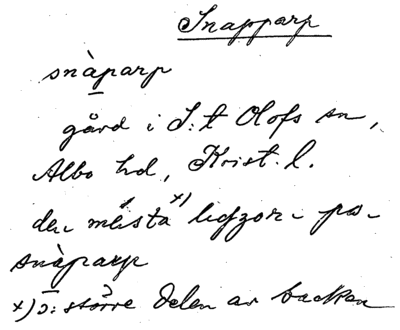 Snapparp
snàparp
gård i S:t Olofs sn,
Albo hd, Krist. l.
de mésta x) på
snàparp
x) ɔ: större delen av backen